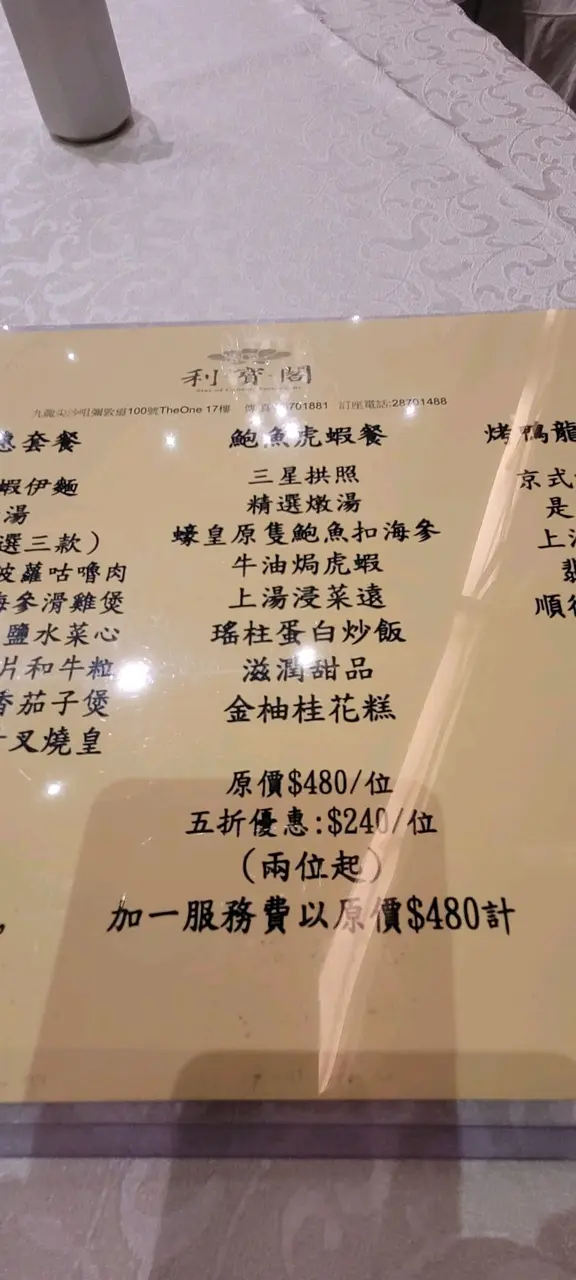 利寶閣
九龍尖沙咀彌敦道100號TheOne 17樓 傳真 701881 訂座電話:28701488
套餐
蝦伊麵
湯
選三款)
菠蘿咕嚕肉
海參滑雞煲
鹽水菜心
片和牛粒
香茄子煲
叉燒皇
鮑魚虎蝦餐
三星拱照
精選燉湯
蠔皇原隻鮑魚扣海參
牛油焗虎蝦
上湯浸菜遠
瑤柱蛋白炒飯
滋潤甜品
金柚桂花糕
原價$480/位
五折優惠:$240/位
(兩位起)
加一服務費以原價$480計
烤鴨龍
京式
是
上
順